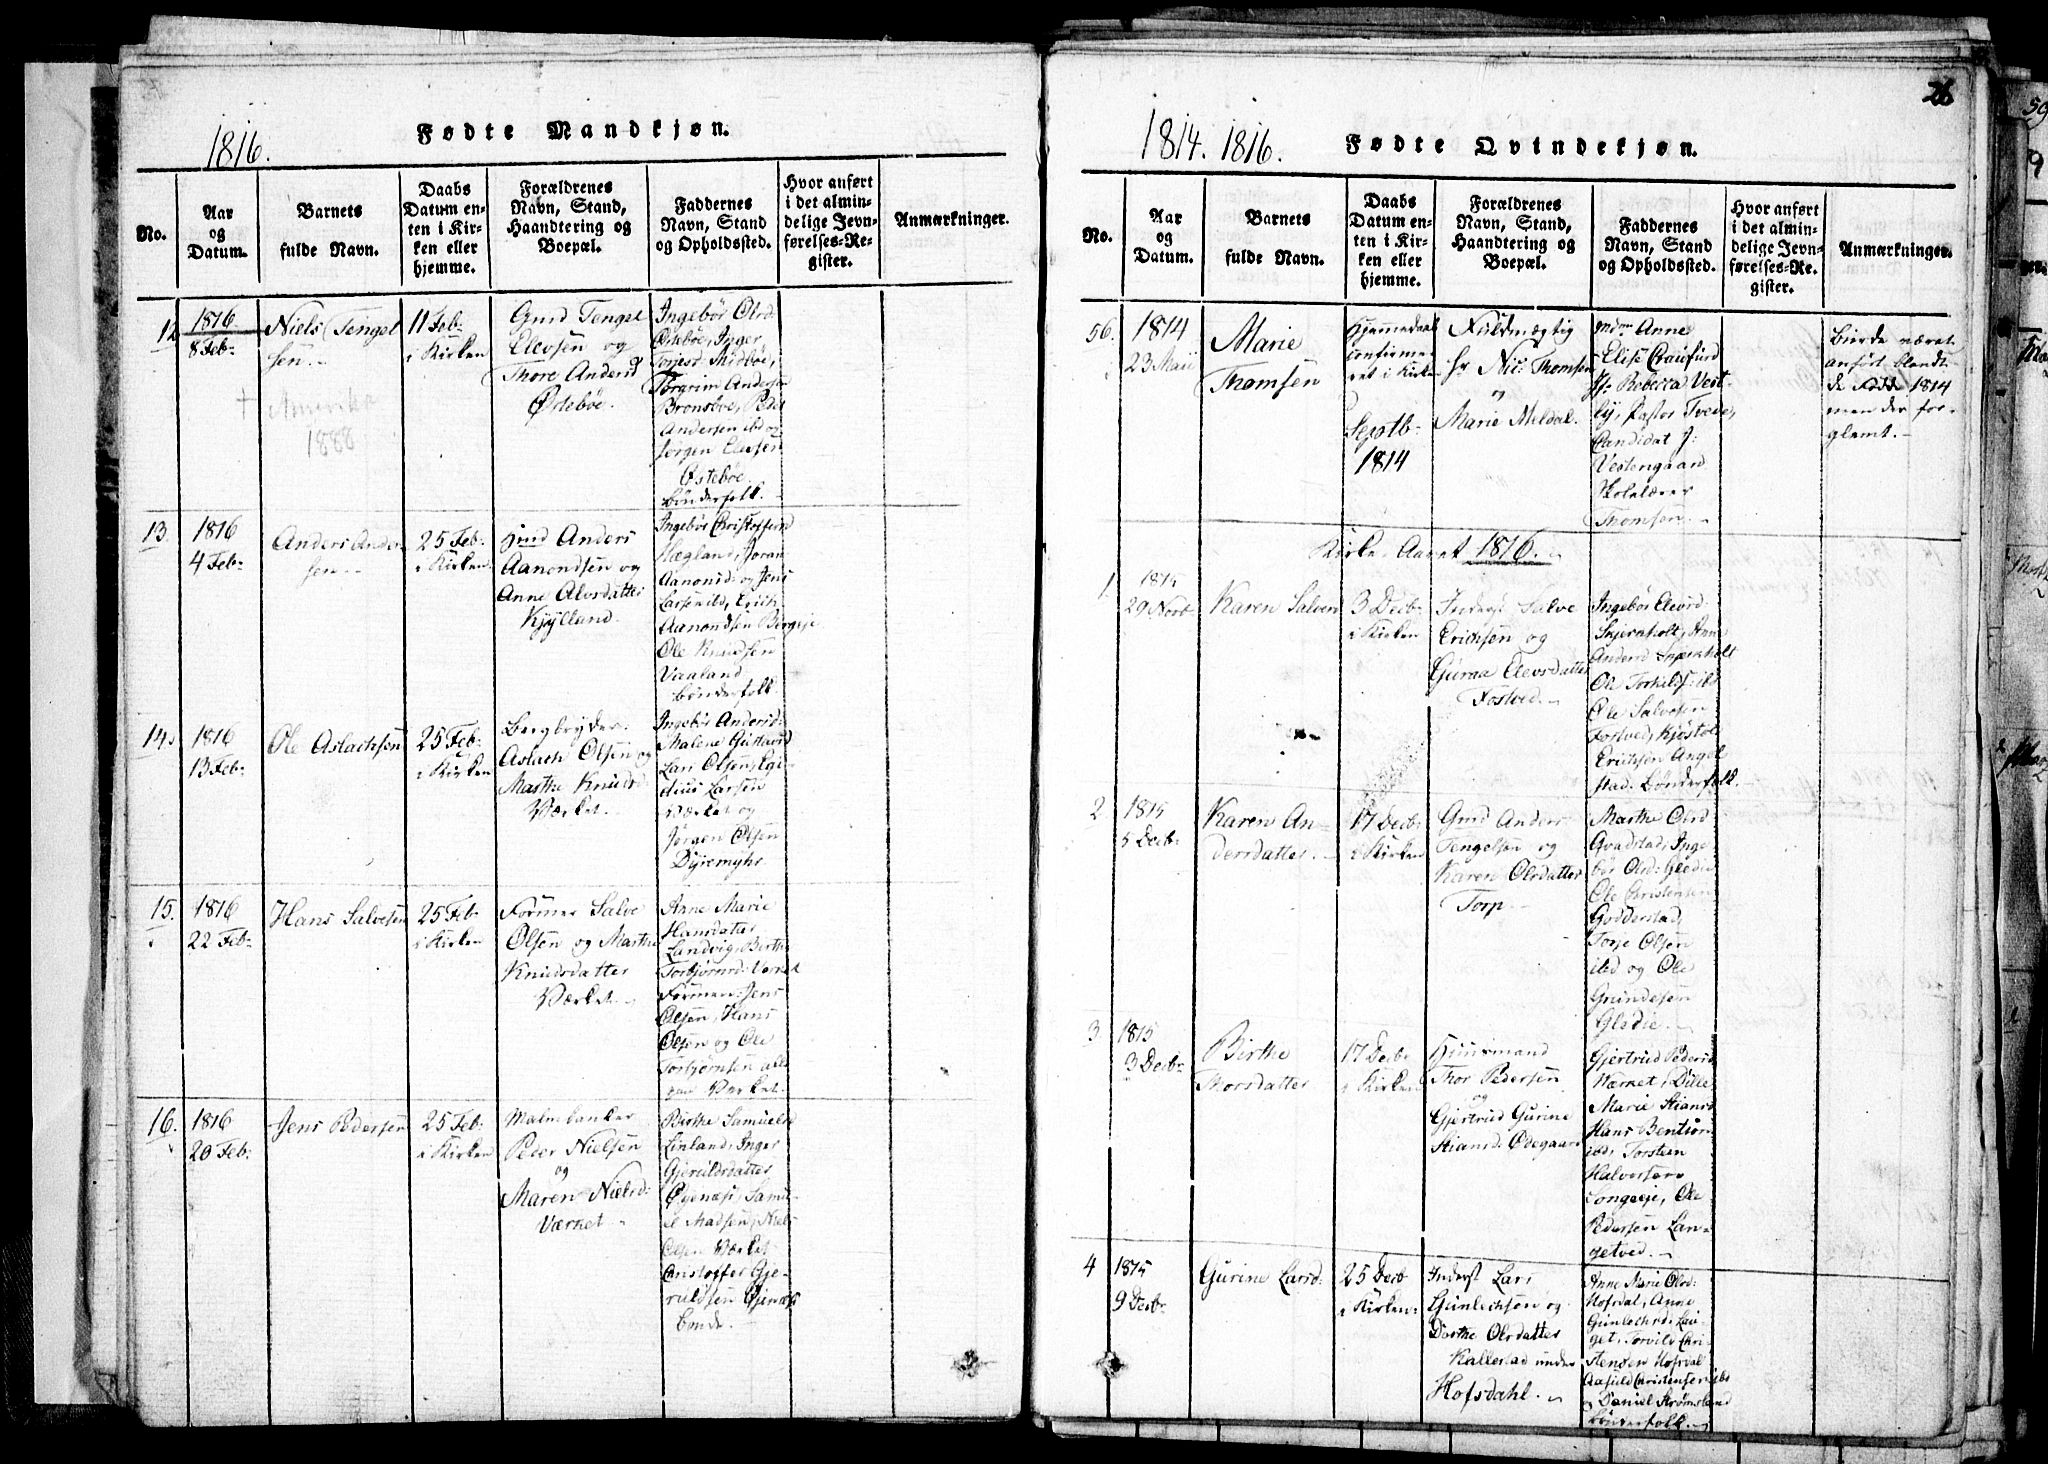 1816.
Fødte Mandkjøn.
No.
Aar
og
Datum.
Barnets
fulde Navn.
Daabs
Datum en-
ten i Kir-
ken eller
hjemme.
Forældrenes
Navn, Stand,
Haandtering og
Boepæl.
Faddernes
Navn, Stand
og Opholdssted.
Hvor anført
i det almin-
delige Jevn-
førelses-Re-
gister.
Anmærkninger.
12
1816
8 Feb:
Niels Tengel
sen.
+ Amerika
1888
11 Feb:
i Kirken
Gmd Tengel
Elevsen og
Thore Andersd
Østebøe.
Ingebør Olsd
Østebøe, Inger
Midbøe,
Torgrim Anders
Bronsboe, Peder
Andersen ibd og
Jørgen Elevsen
Østebøe
bønderfolk.
13
1816
4 Feb:
Anders Ander
sen.
25 Feb:
i Kirken
Anders
Aanondsen og
Anne Alvsdatter
Kjylland.
Ingebør Christophersd
Hægland, Joran
Aanonsd: og Jens
Larsen ibd, Erich
Aanondsen Bergeje
Ole Knudsen
Vaaland
bønderfolk.
14.
1816
13 Feb:
Ole Aslachsen
25 Feb:
i Kirken
Bergbryder
Aslach Olsen og
Marthe Knudsd:
Værket.
Ingebør Andersd:
Malene Gustavsd
Lars Olsen, Egi-
dius Larsen
Værket og
Jørgen Olsen
Dyremyhr
15.
1816
22 Feb:
Hans Salvesen
25 Feb:
i Kirken
Former Salve
Olsen og Marthe
Knudsdatter
Værket.
Anne Marie
Hansdatter
Landvig, Birthe
Torbjørnsd: Værket
Former: Jens
Olsen, Hans
Olsen og Ole
Torbjørnsen alle
paa Værket.
16.
1816
20 Feb:
Jens Pedersen
25 Feb:
i Kirken
Malmbanker
Peder Nielsen
og
Maren Nielsd:
Værket
Birthe Samuelsd
Linland, Inger
Gjeruldsdatter
Øyenæs, Samu-
el Madsen, Niels
Olsen Værket
Christoffer Gje-
ruldsen Øjenæs
bonde.
26
1814. 1816.
Fødte Qvindekjøn.
No.
Aar
og
Datum.
Barnets
fulde Navn.
Daabs
Datum en-
ten i Kir-
ken eller
hjemme.
Forældrenes
Navn, Stand,
Haandtering og
Boepæl.
Faddernes
Navn, Stand
og Opholdssted.
Hvor anført
i det almin-
delige Jevn-
førelses-Re-
gister.
Anmærkninger.
56.
1814
23 Maii
Marie
Thomsen
Hjemmedaab
confirme
ret i Kirken
Septb:
1814
Fuldmægtig
Hr Nic: Thomsen
og
Marie Meldal.
Anne
Elise Craufurd
Jfr Rebecca Vest-
ly, Pastor Tvede,
Candidat J:
Vestengaard
Skolelærer
Thomsen.
Burde været
anført blandt
de Fødde 1814
men der for-
glemt.
Kirke Aaret 1816.
1
1815
29 Novb
Karen Salves
3 Decb:
i Kirken
Inderst Salve
Erichsen og
Guroe Elevsdatter
Fostved.
Ingebør Elevsd:
Skjernholt, Anne
Andersd Skjernholt
Ole Torkilds: ibd
Ole Salvesen
Fostved, Kjøstol
Erichsen Angel
stad. Bønderfolk.
2
1815
5 Decb:
Karen An-
dersdatter
17 Decb:
i Kirken
Gmd Anders
Tengelsen og
Karen Olsdatter
Torp
Marthe Olsd
Qvadstad, Inge
bør Olsd: Glødie
Ole Christensen
Godderstad,
Torje Olsen
ibd og Ole
Gundesen
Glødie.
3
1815
3 Decb:
Birthe
Thorsdatter
17 Decb:
i Kirken
Huusmand
Thor Pedersen
og
Gjertrud Gurine
Stiansd: Ødegaard
Gjertrud Pedersd
Værket, Dille
Marie Stiansd
Hans Bentson
ibd, Torsten
Halvorsen
Songeeje, Ole
Pedersen Lan-
getved.
4
1815
9 Decb:
Gurine Larsd:
25 Decb
i Kirken:
Inderst Lars
Gunlechsen og
Dorthe Olsdatter
Kallestad under
Hofsdahl.
Anne Marie Olsd:
Hofsdal, Anne
Gunlechsd:
Torvils Chri-
stensen Hofsdal
Aasuld Christensen ibd
og Daniel Strømsland
bønderfolk.